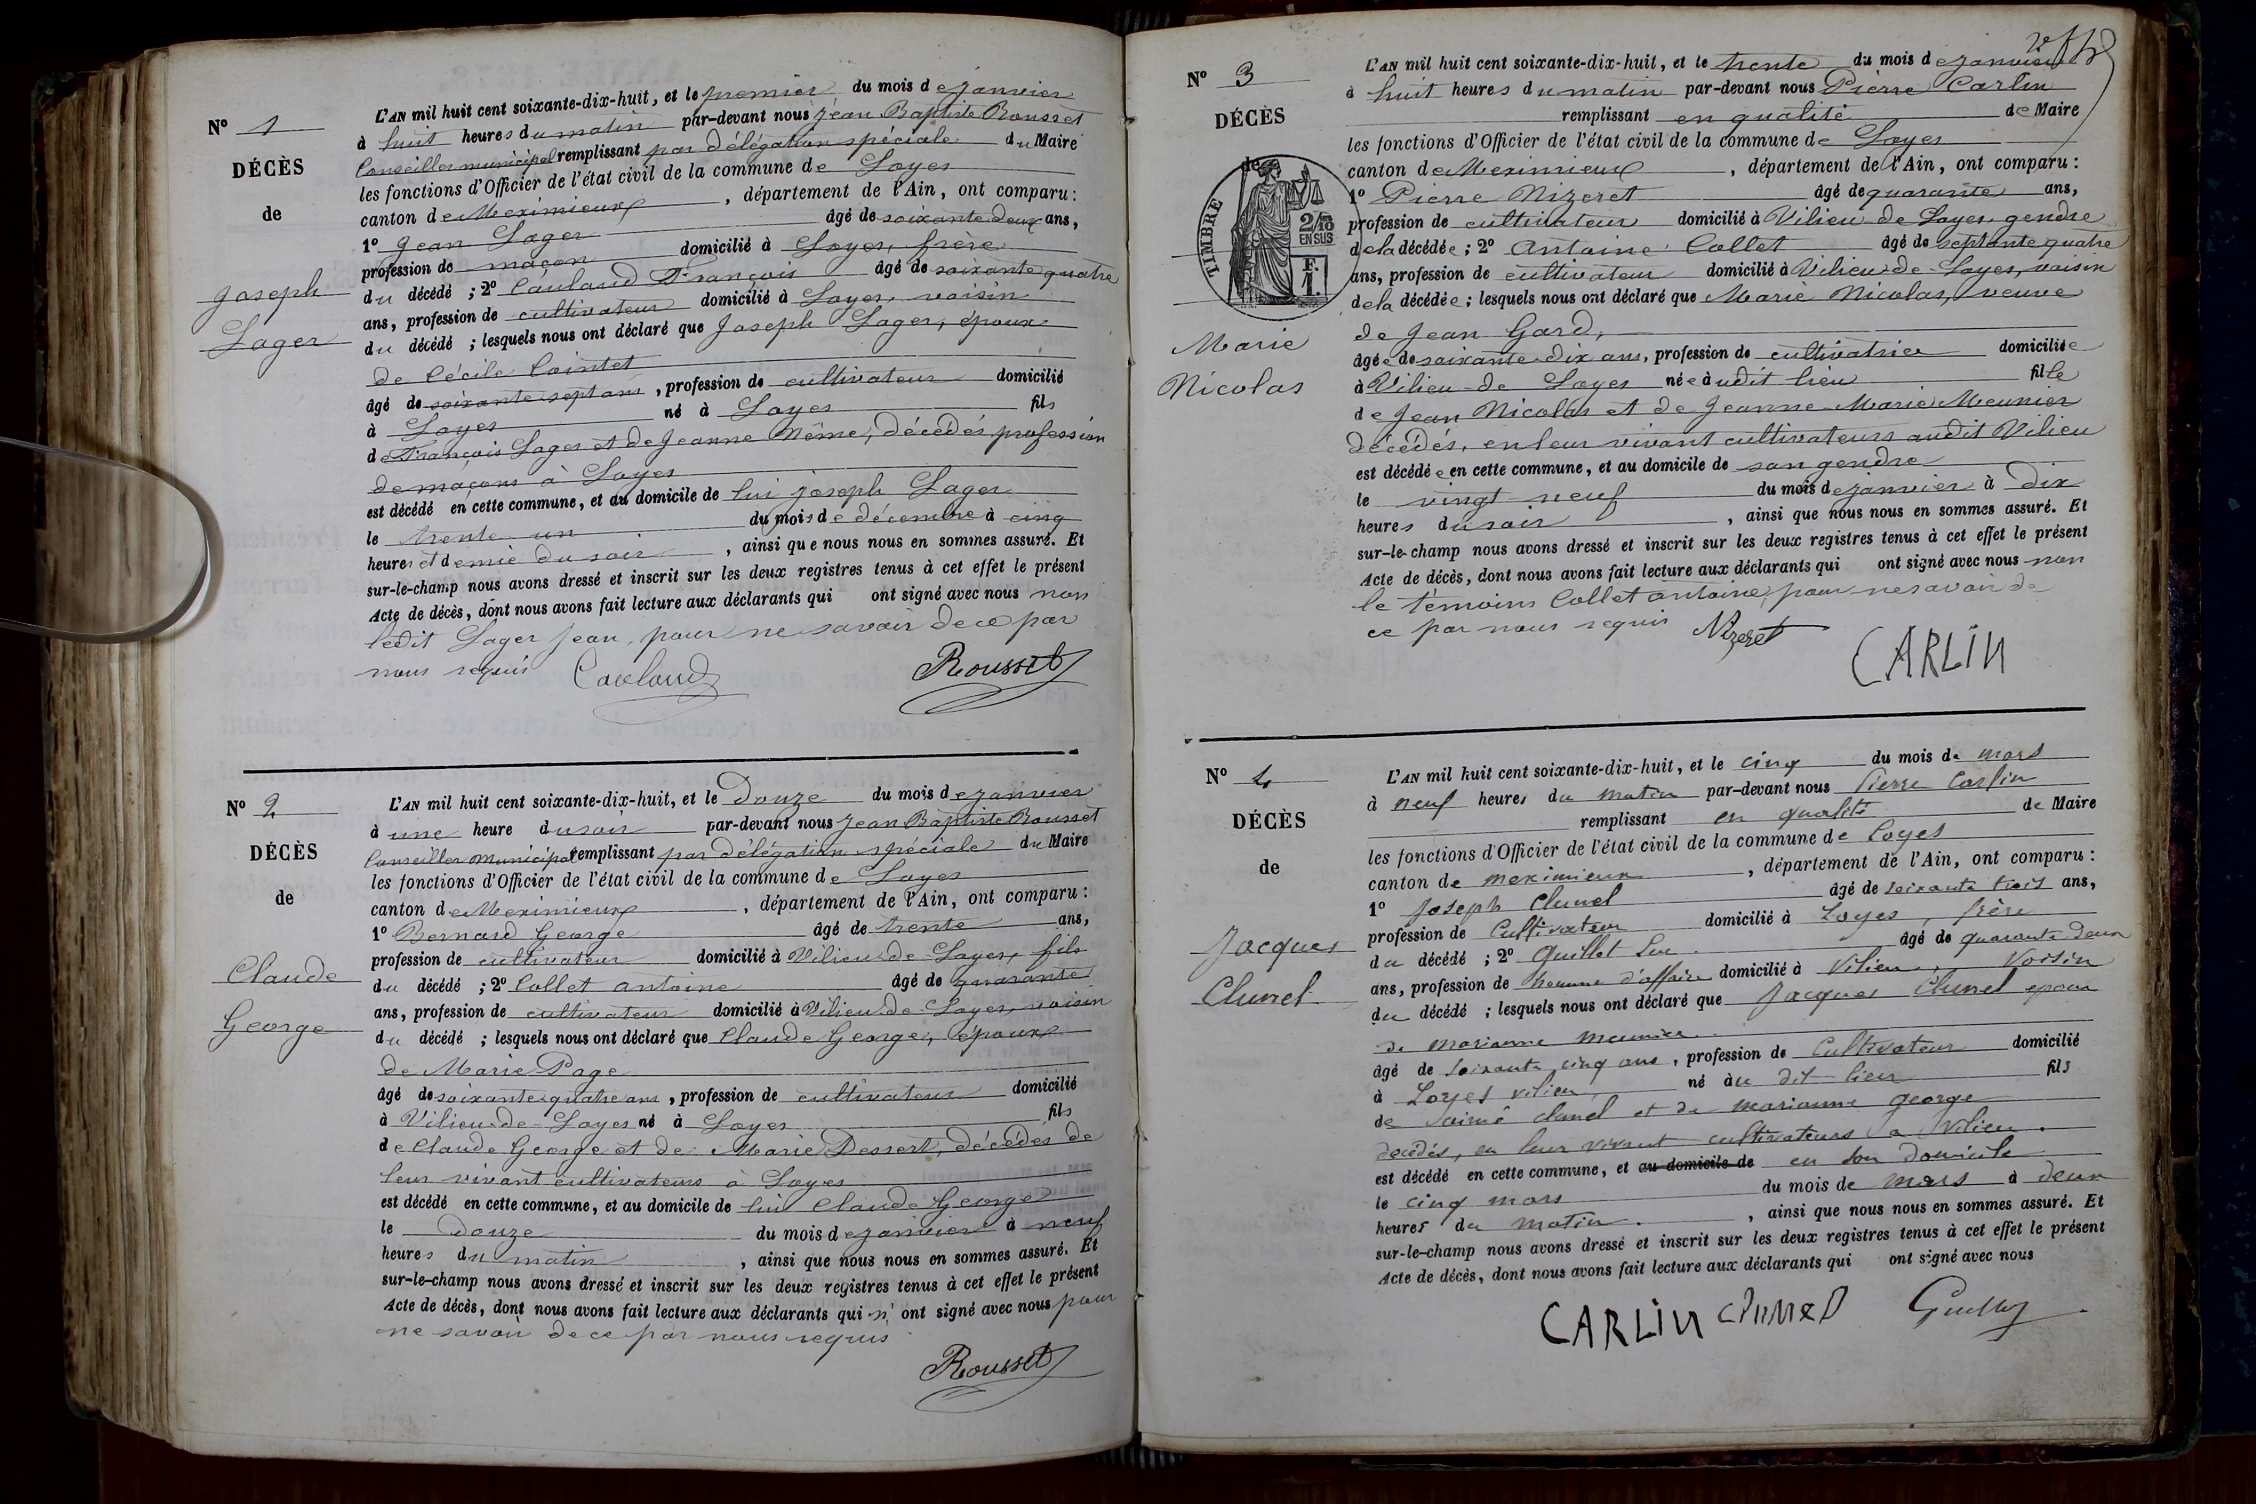 N° 1
DÉCÈS
de
Joseph
Lager
L'AN mil huit cent soixante-dix-huit, et le premier du mois de janvier
à huit heures du matin par-devant nous Jean Baptiste Rousset
Conseiller municipal remplissant par délégation spéciale du Maire
les fonctions d'Officier de l'état civil de la commune de Loyes
canton de Meximieux, département de l'Ain, ont comparu :
1° Jean Lager âgé de soixante deux ans,
profession de maçon domicilié à Loyes, frère
du décédé ; 2° Caulaud François âgé de soixante quatre
ans, profession de cultivateur domicilié à Loyes, voisin
du décédé ; lesquels nous ont déclaré que Joseph Lager, époux
de Cécile Cointet
âgé de soixante sept ans, profession de cultivateur domicilié
à Loyes né à Loyes fils
de François Lager et de Jeanne Même, décédés profession
de maçons à Loyes
est décédé en cette commune, et au domicile de lui Joseph Lager
le trente un du mois de décembre à cinq
heures et demie du soir, ainsi que nous nous en sommes assuré. Et
sur-le-champ nous avons dressé et inscrit sur les deux registres tenus à cet effet le présent
Acte de décès, dont nous avons fait lecture aux déclarants qui ont signé avec nous non
ledit Lager Jean, pour ne savoir de ce par
nous requis Caulaud Rousset
N° 2
DÉCÈS
de
Claude
George
L'AN mil huit cent soixante-dix-huit, et le Douze du mois de janvier
à une heure du soir par-devant nous Jean Baptiste Rousset
Conseiller municipal remplissant par délégation spéciale du Maire
les fonctions d'Officier de l'état civil de la commune de Loyes
canton de Meximieux, département de l'Ain, ont comparu :
1° Bernard George âgé de trente ans,
profession de cultivateur domicilié à Vilieu-de-Loyes, fils
du décédé ; 2° Collet antoine âgé de quarante
ans, profession de cultivateur domicilié à Vilieu-de-Loyes, voisin
du décédé ; lesquels nous ont déclaré que Claude George, époux
de Marie Page
âgé de soixante quatre ans, profession de cultivateur domicilié
à Vilieu-de-Loyes né à Loyes fils
de Claude George et de Marie Dessert, décédés de
leur vivant cultivateurs à Loyes
est décédé en cette commune, et au domicile de lui Claude George
le Douze du mois de janvier à neuf
heures du matin, ainsi que nous nous en sommes assuré. Et
sur-le-champ nous avons dressé et inscrit sur les deux registres tenus à cet effet le présent
Acte de décès, dont nous avons fait lecture aux déclarants qui n'ont signé avec nous pour
ne savoir de ce par nous requis
Rousset
N° 3
DÉCÈS
de
TIMBRE
2/10
EN SUS
F.
1.
Marie
Nicolas
L'AN mil huit cent soixante-dix-huit, et le trente du mois de janvier
à huit heures du matin par-devant nous Pierre Carlin
remplissant en qualité de Maire
les fonctions d'Officier de l'état civil de la commune de Loyes
canton de Meximieux, département de l'Ain, ont comparu :
1° Pierre Nizeret âgé de quarante ans,
profession de cultivateur domicilié à Vilieu-de-Loyes gendre
de la décédée ; 2° Antoine Collet âgé de septante quatre
ans, profession de cultivateur domicilié à Vilieu-de-Loyes, voisin
de la décédée ; lesquels nous ont déclaré que Marie Nicolas, veuve
de Jean Gard,
âgée de soixante-dix ans, profession de cultivatrice domiciliée
à Vilieu-de-Loyes née audit lieu fille
de Jean Nicolas et de Jeanne-Marie Meunier
décédés, en leur vivant cultivateurs audit Vilieu
est décédée en cette commune, et au domicile de son gendre
le vingt neuf du mois de janvier à Dix
heures du soir, ainsi que nous nous en sommes assuré. Et
sur-le-champ nous avons dressé et inscrit sur les deux registres tenus à cet effet le présent
Acte de décès, dont nous avons fait lecture aux déclarants qui ont signé avec nous non
le témoins Collet antoine, pour ne savoir de
ce par nous requis Nizeret CARLIN
N° 4
DÉCÈS
de
Jacques
Clunel
L'AN mil huit cent soixante-dix-huit, et le cinq du mois de mars
à neuf heures du matin par-devant nous Pierre Carlin
remplissant en qualité de Maire
les fonctions d'Officier de l'état civil de la commune de Loyes
canton de meximieux, département de l'Ain, ont comparu :
1° Joseph Clunel âgé de soixante trois ans,
profession de Cultivateur domicilié à Loyes, frère
du décédé ; 2° Guillot âgé de quarante deux
ans, profession de homme d'affaire domicilié à Vilieu, Voisin
du décédé ; lesquels nous ont déclaré que Jacques Clunel epoux
de marianne meunier
âgé de soixante cinq ans, profession de Cultivateur domicilié
à Loyes vilieu né au dit lieu fils
de clunel et de marianne george
décédés, en leur vivant cultivateurs a Vilieu.
est décédé en cette commune, et au domicile de en son domicile
le cinq mars du mois de mars à deux
heures du matin., ainsi que nous nous en sommes assuré. Et
sur-le-champ nous avons dressé et inscrit sur les deux registres tenus à cet effet le présent
Acte de décès, dont nous avons fait lecture aux déclarants qui ont signé avec nous
CARLIN CLUNEL Guillot